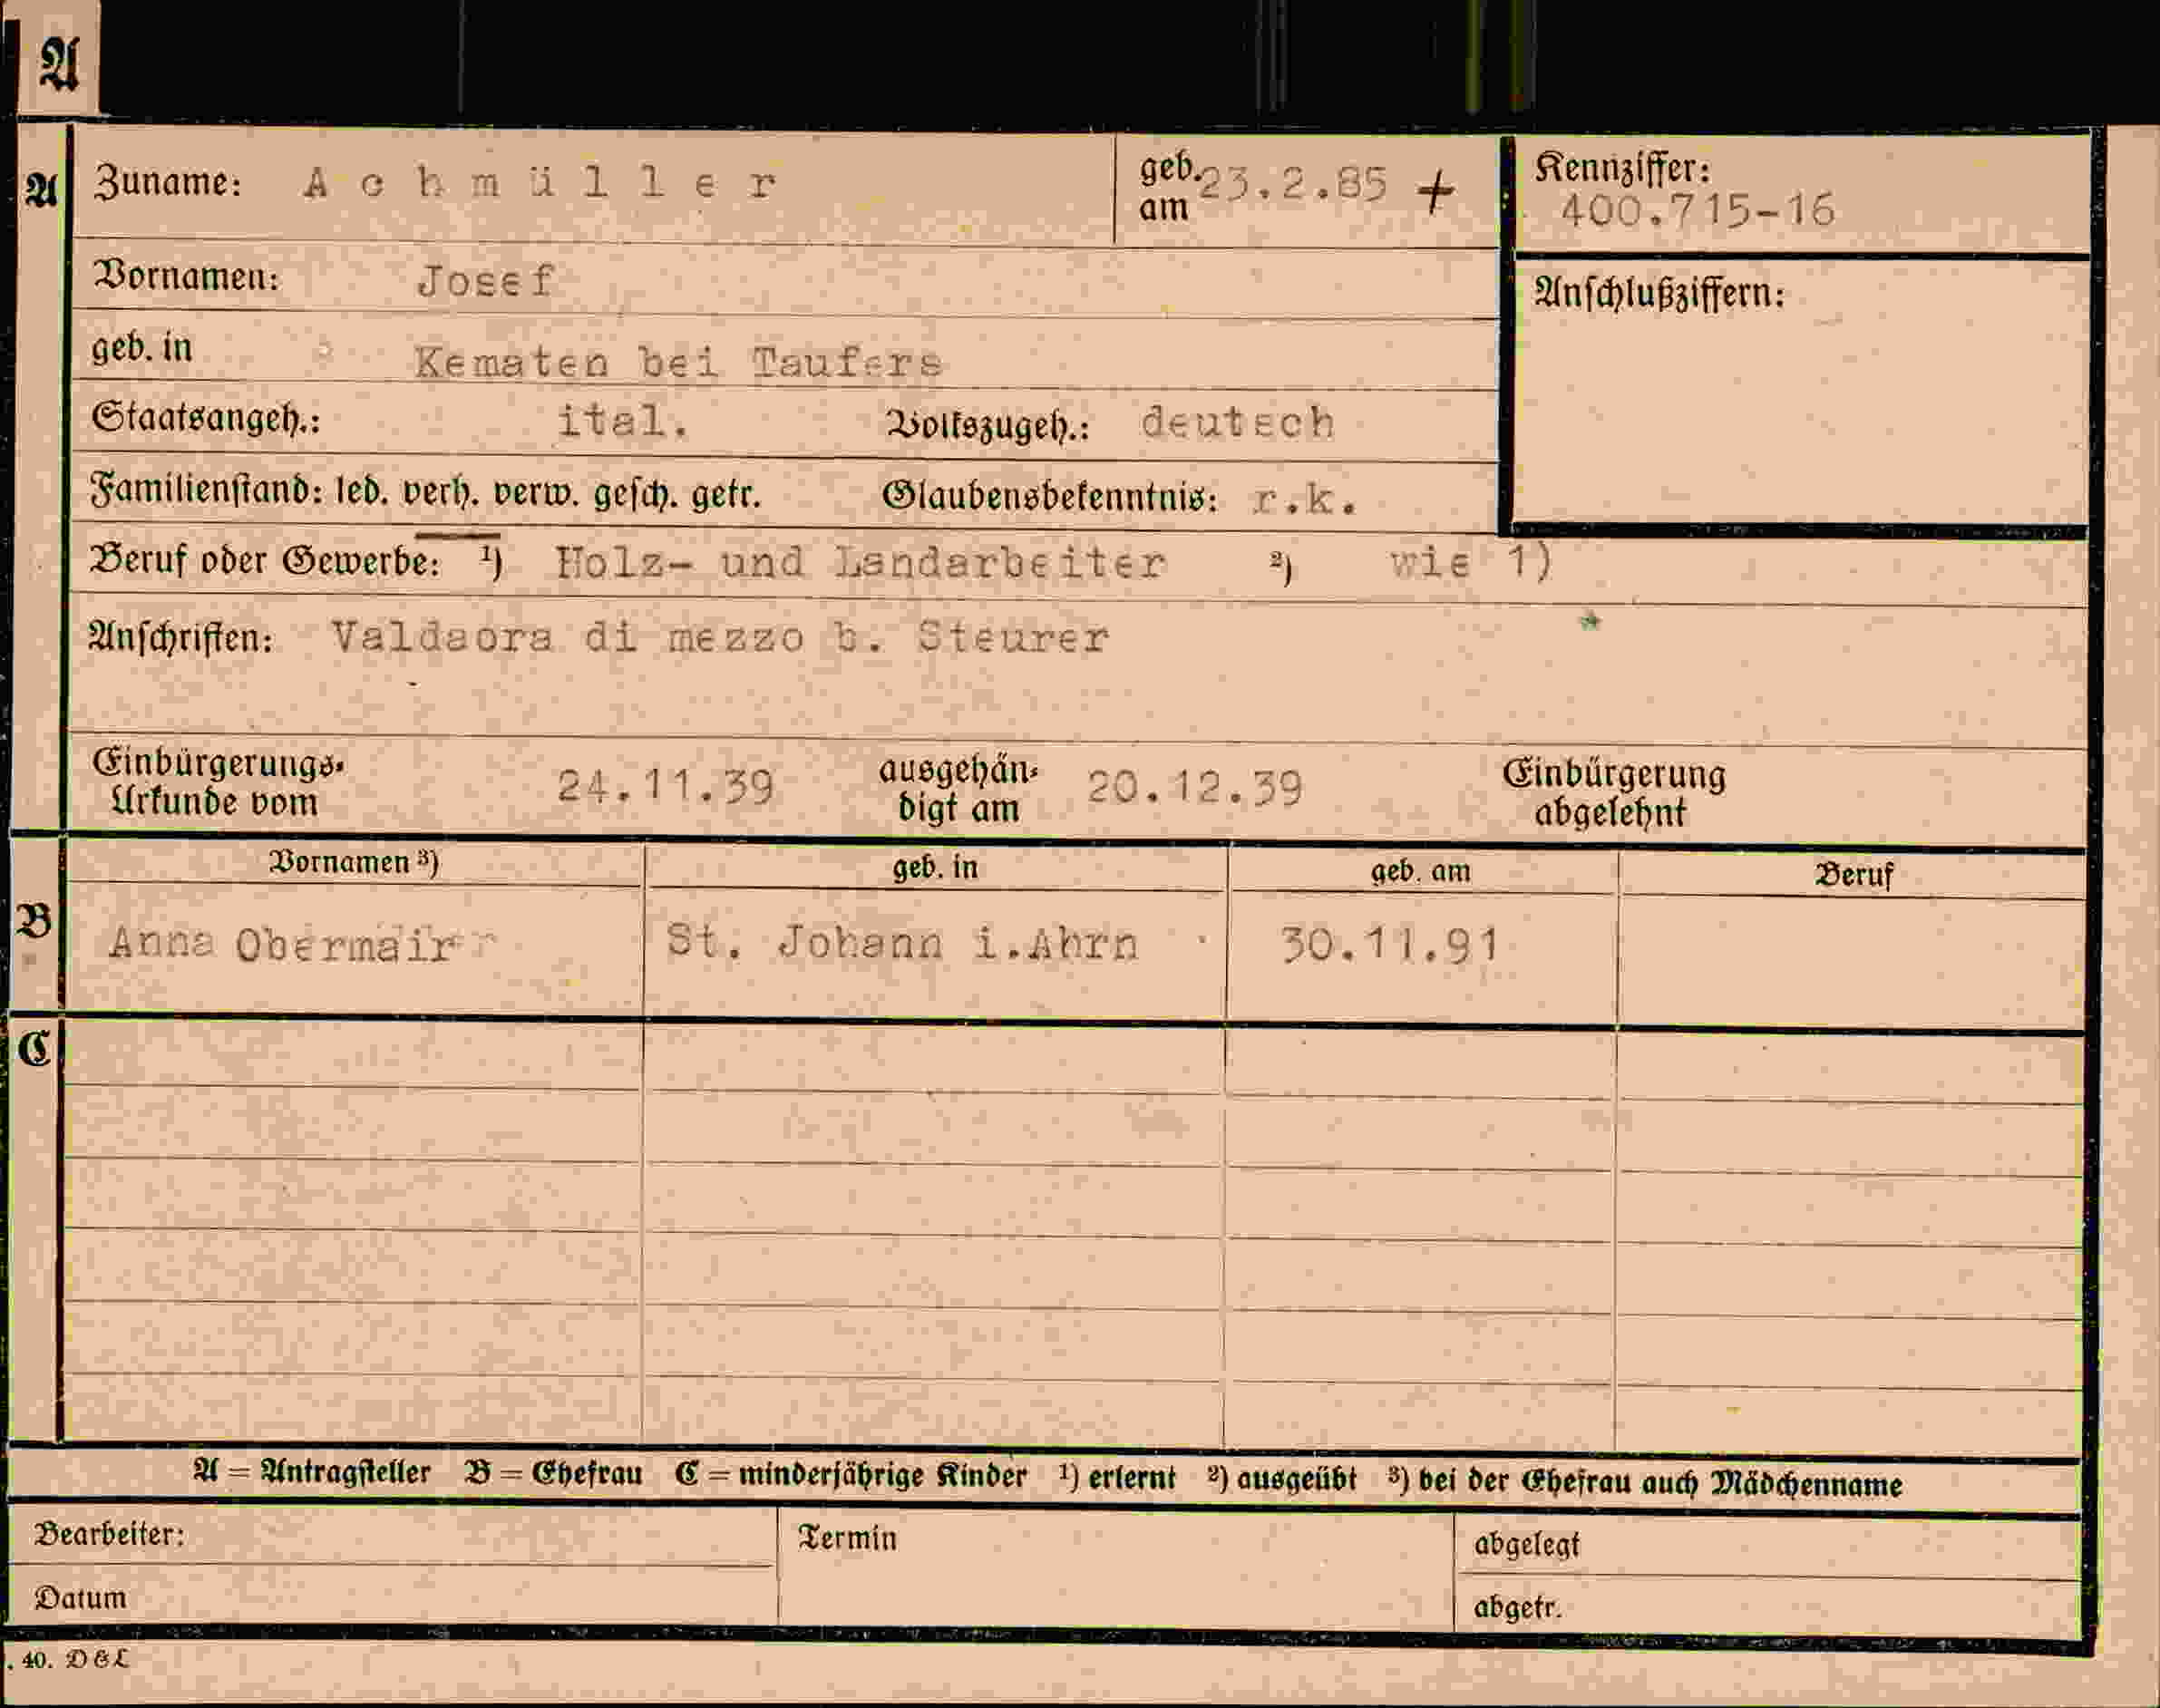 A
A Zuname: Achmüller geb. am 23.2.85 + Kennziffer: 400.715-16
Vornamen: Josef Anschlußziffern:
geb. in Kematen bei Taufers
Staatsangeh.: ital. Volkszugeh.: deutsch
Familienstand: led. verh. verw. gesch. getr. Glaubensbekenntnis: r.k.
Beruf oder Gewerbe: 1) Holz- und Landarbeiter 2) wie 1)
Anschriften: Valdaora di mezzo b. Steurer
Einbürgerungs-Urkunde vom 24.11.39 ausgehändigt am 20.12.39 Einbürgerung abgelehnt
Vornamen 3) geb. in geb. am Beruf
B Anna Obermair St. Johann i.Ahrn 30.11.91
C
A = Antragsteller B = Ehefrau C = minderjährige Kinder 1) erlernt 2) ausgeübt 3) bei der Ehefrau auch Mädchenname
Bearbeiter: Termin abgelegt
Datum abgetr.
. 40. D & L